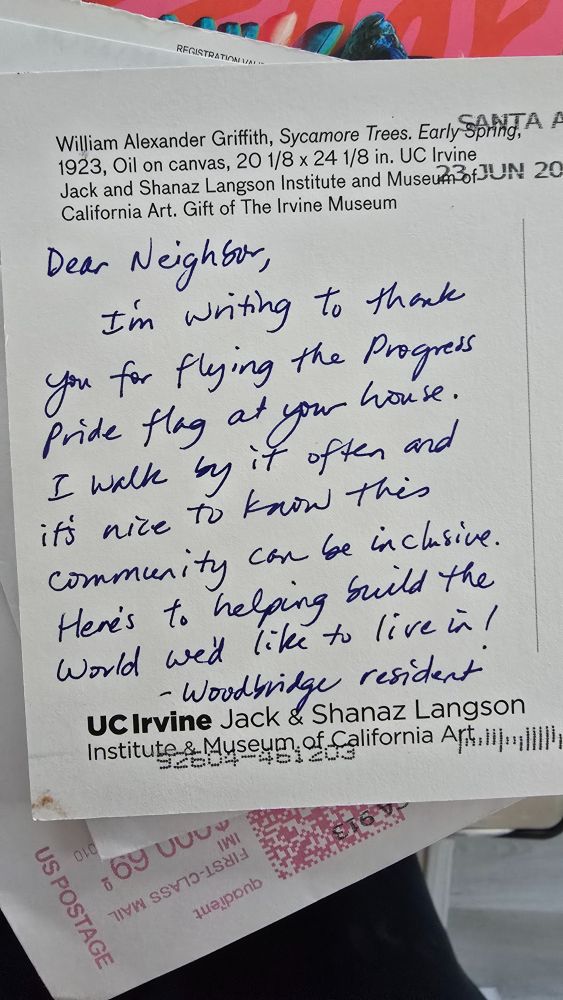 REGISTRATION
SANTA A
23 JUN 20
William Alexander Griffith, Sycamore Trees. Early Spring,
1923, Oil on canvas, 20 1/8 x 24 1/8 in. UC Irvine
Jack and Shanaz Langson Institute and Museum of
California Art. Gift of The Irvine Museum
Dear Neighbor,
I'm writing to thank
you for flying the Progress
Pride flag at your house.
I walk by it often and
it's nice to know this
community can be inclusive.
Here's to helping build the
world we'd like to live in!
- Woodbridge resident
UC Irvine Jack & Shanaz Langson
Institute & Museum of California Art
92604-461203
US POSTAGE
FIRST-CLASS MAIL
IMI
quadient